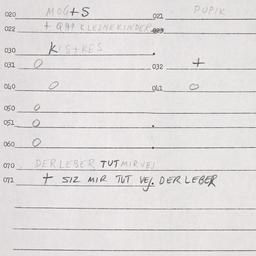 020 MOGTS 021 PUPIK
022 + QAP KLEINE KINDER 023
030 KISHKES
031 0 032 +
040 0 041 0
050 0
051 0
060 0
070 DER LEBER TUT MIR VEJ
072 + SIZ MIR TUT VEJ. DER LEBER